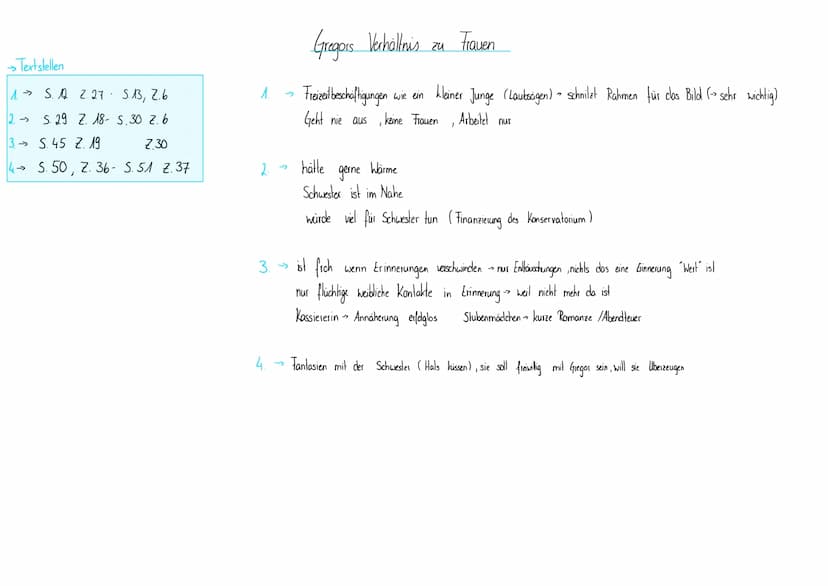 Gregors Verhältnis zu Frauen
→ Textstellen
1 → S. 12 Z 27 - S.13, Z.6
2 → S 29 Z. 18 - S.30 Z.6
3 → S.45 Z.19 Z.30
4 → S.50, Z.36 - S.51 Z.37
1. → Freizeitbeschäftigungen wie ein kleiner Junge (Laubsägen) → schnitzt Rahmen für das Bild (→ sehr wichtig)
Geht nie aus, keine Frauen, Arbeitet nur
2. → hätte gerne Wärme
Schwester ist im Nahe
würde viel für Schwester tun (Finanzierung des Konservatorium)
3. → ist froh wenn Erinnerungen verschwinden → nur Enttäuschungen, nichts das eine Erinnerung "Wert" ist
nur flüchtige weibliche Kontakte in Erinnerung → weil nicht mehr da ist
Kassiererin → Annäherung erfolglos Stubenmädchen → kurze Romanze / Abendteuer
4. → Fantasien mit der Schwester (Hals küssen), sie soll freiwillig mit Gregor sein, will sie Überzeugen